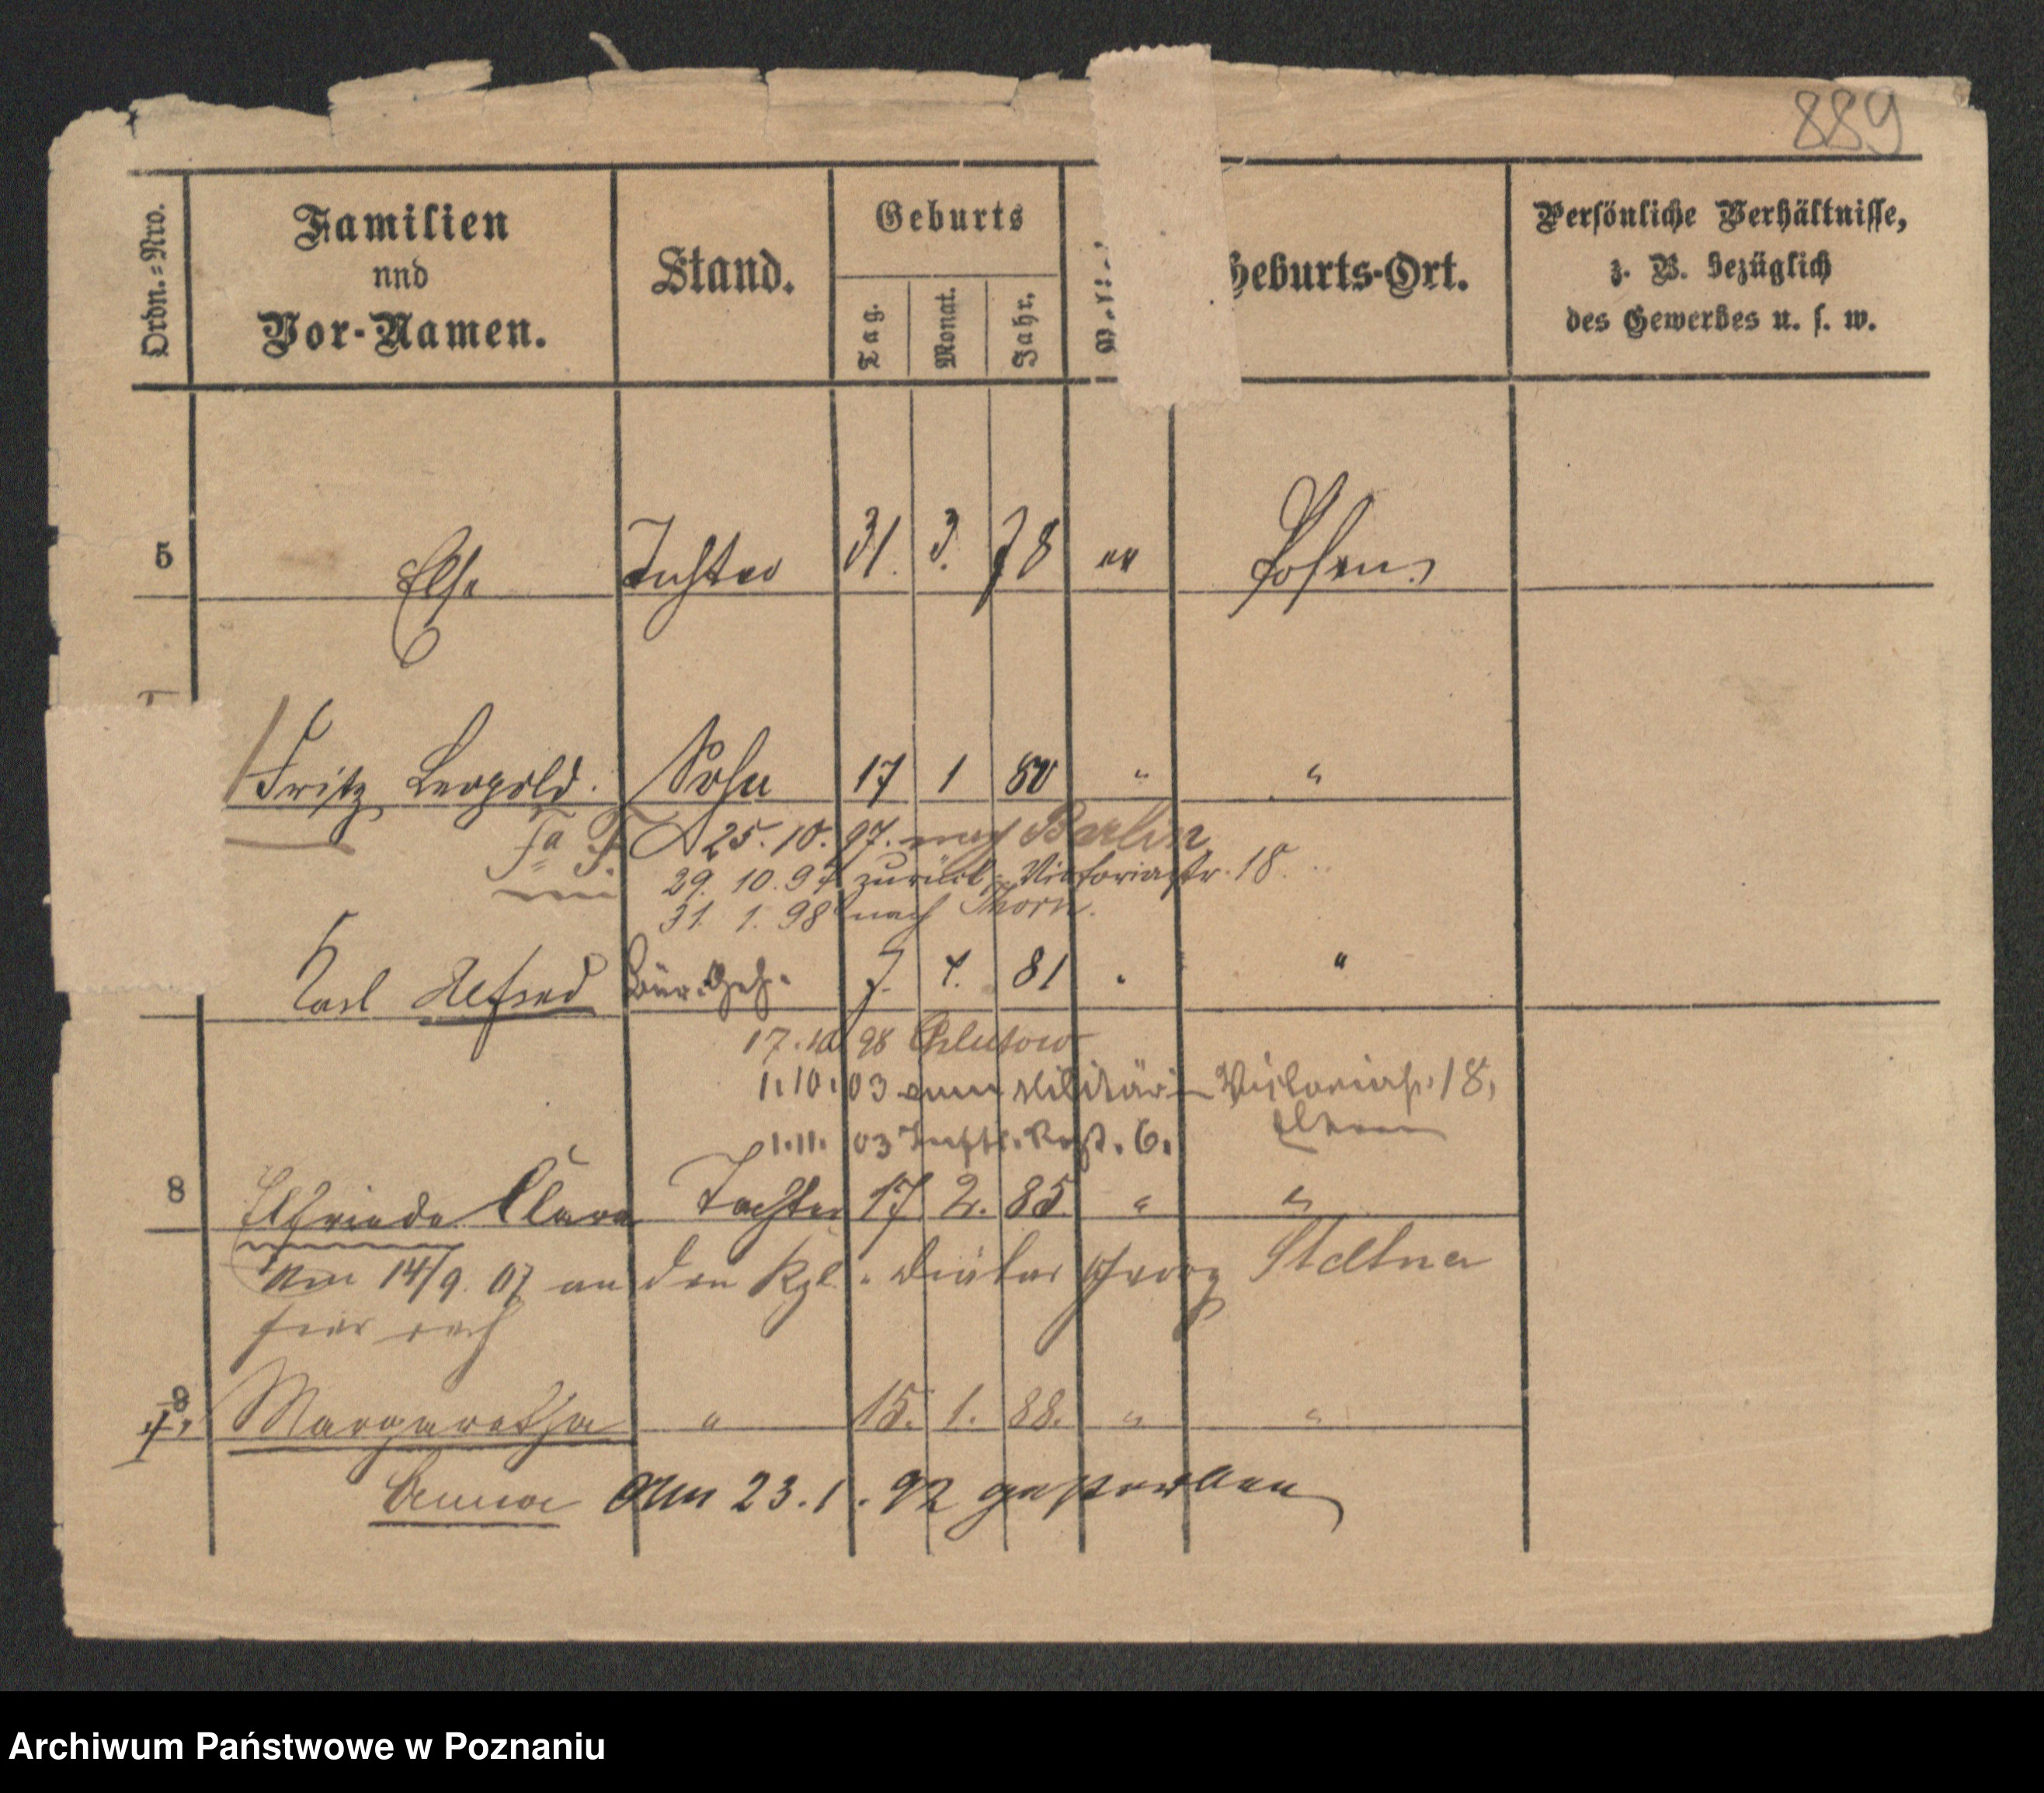 889
Ordn.=Nro.
Familien
nnd
Vor-Namen.
Stand.
Geburts
Tag.
Monat.
Jahr.
Geburts-Ort.
Persönliche Verhältnisse,
z. B. bezüglich
des Gewerbes u. s. w.
5 Else Tochter 31. 3. 78 " Posen
Fritz Leopold. Sohn 17 1 80 " "
25. 10. 97. nach Berlin
29. 10. 97 zurück Victoriastr. 18.
31. 1. 98 nach Thorn.
Karl Alfred Bür. Geh. 7. 4. 81 " "
17. 10 98
1. 10. 03 zum Militär Victoriastr. 18,
Eltern
1. 11. 03 Inftr. Regt. 6.
8 Elfriede Clara Tochter 17 2. 85. " "
Am 14/9. 07 an den Kgl. Diätar Georg Steltner
hier verh
Margaretha " 15. 1. 88. " "
Anna Am 23. 1. 92 gestorben
Archiwum Państwowe w Poznaniu